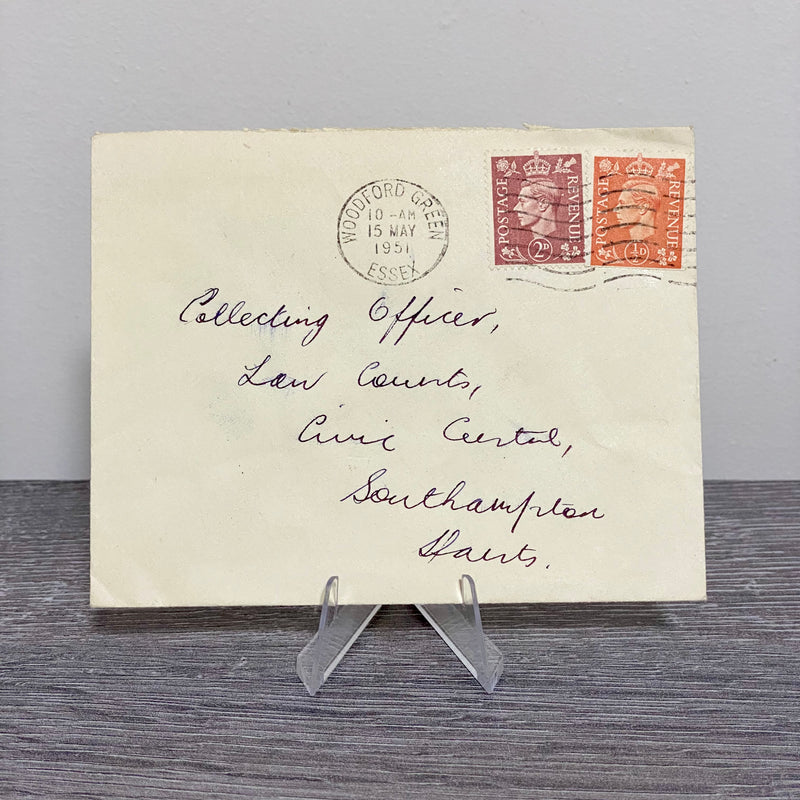 WOODFORD GREEN
10 -AM
15 MAY
1951
ESSEX
POSTAGE REVENUE
2D
POSTAGE REVENUE
½D
Collecting Officer,
Law Courts,
Civic Central,
Southampton
Hants.